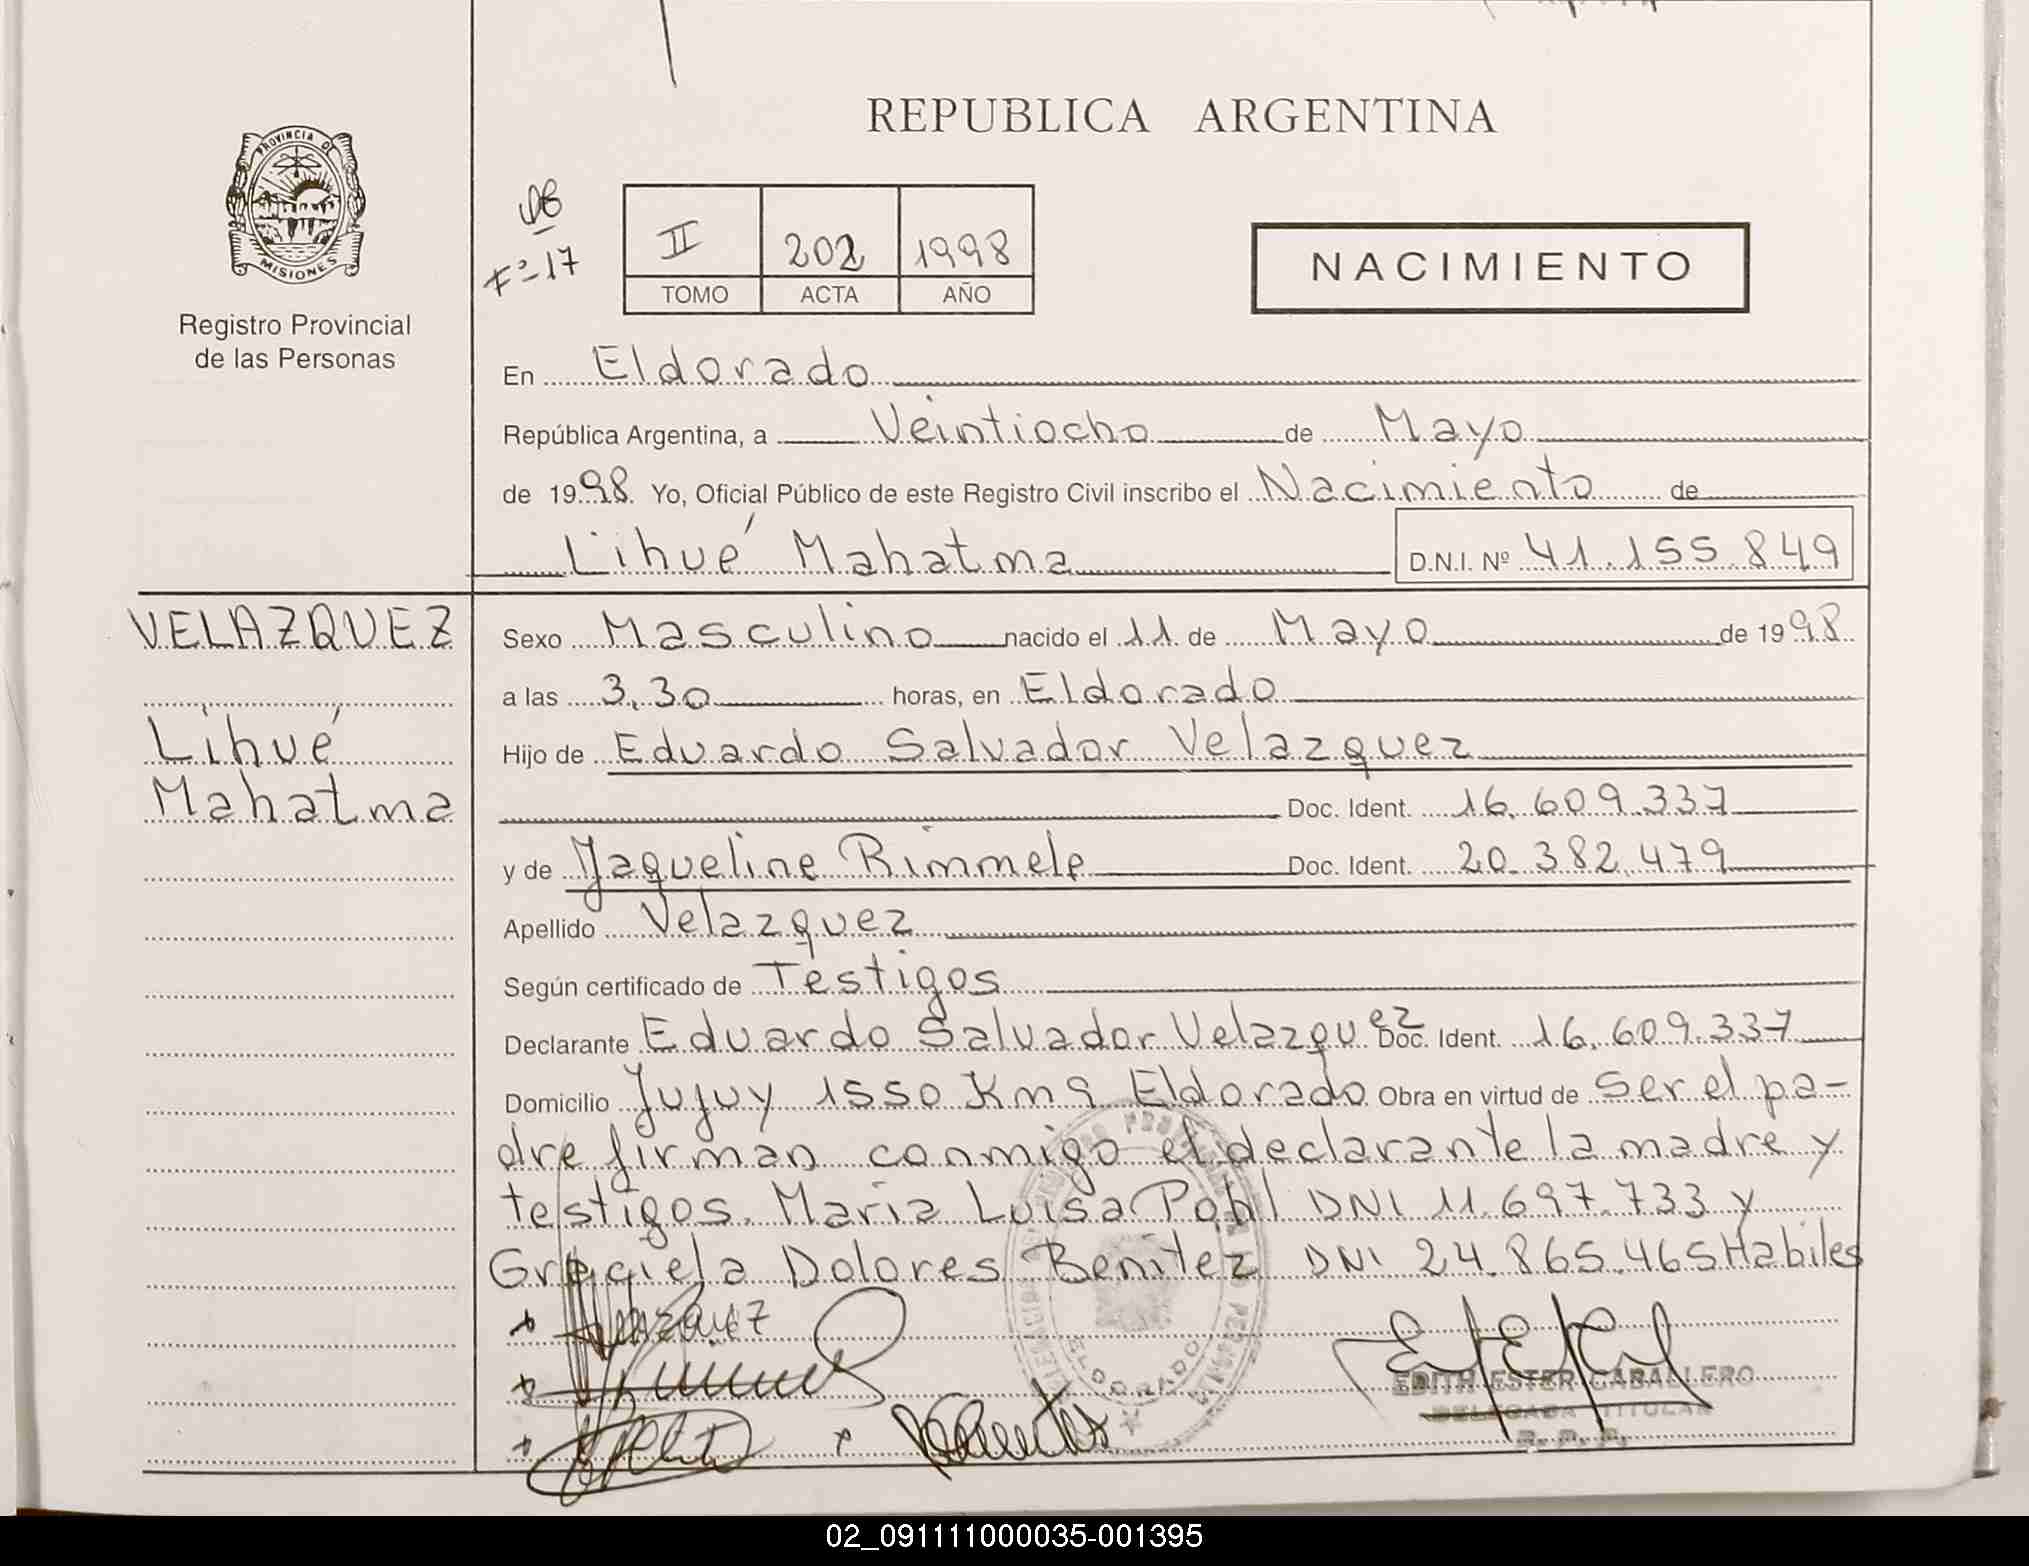 REPUBLICA ARGENTINA
PROVINCIA DE
MISIONES
Registro Provincial
de las Personas
Fº 17
II 202 1998
TOMO ACTA AÑO
NACIMIENTO
En Eldorado
República Argentina, a Veintiocho de Mayo
de 1998. Yo, Oficial Público de este Registro Civil inscribo el Nacimiento de
Lihué Mahatma D.N.I. Nº 41.155.849
VELAZQUEZ
Lihué
Mahatma
Sexo Masculino nacido el 11 de Mayo de 1998
a las 3,30 horas, en Eldorado
Hijo de Eduardo Salvador Velazquez
Doc. Ident. 16.609.337
y de Yaqueline Rimmele Doc. Ident. 20.382.479
Apellido Velazquez
Según certificado de Testigos
Declarante Eduardo Salvador Velazquez Doc. Ident. 16.609.337
Domicilio Jujuy 1550 Km 9 Eldorado Obra en virtud de ser el pa-
dre firman conmigo el declarante la madre y
testigos. Maria Luisa Pohl DNI 11.697.733 y
Graciela Dolores Benitez DNI 24.865.465 Habiles
Velazquez
ELDORADO
EDITH ESTER CABALLERO
DELEGADA TITULAR
R. P. P.
02_091111000035-001395